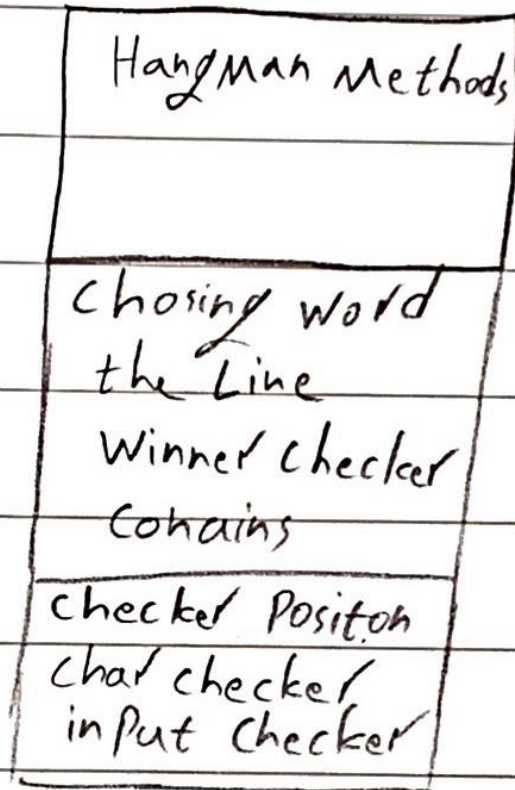 HangMan Methods
Chosing word
the Line
Winner checker
Conains
checker Positon
char checker
inPut Checker